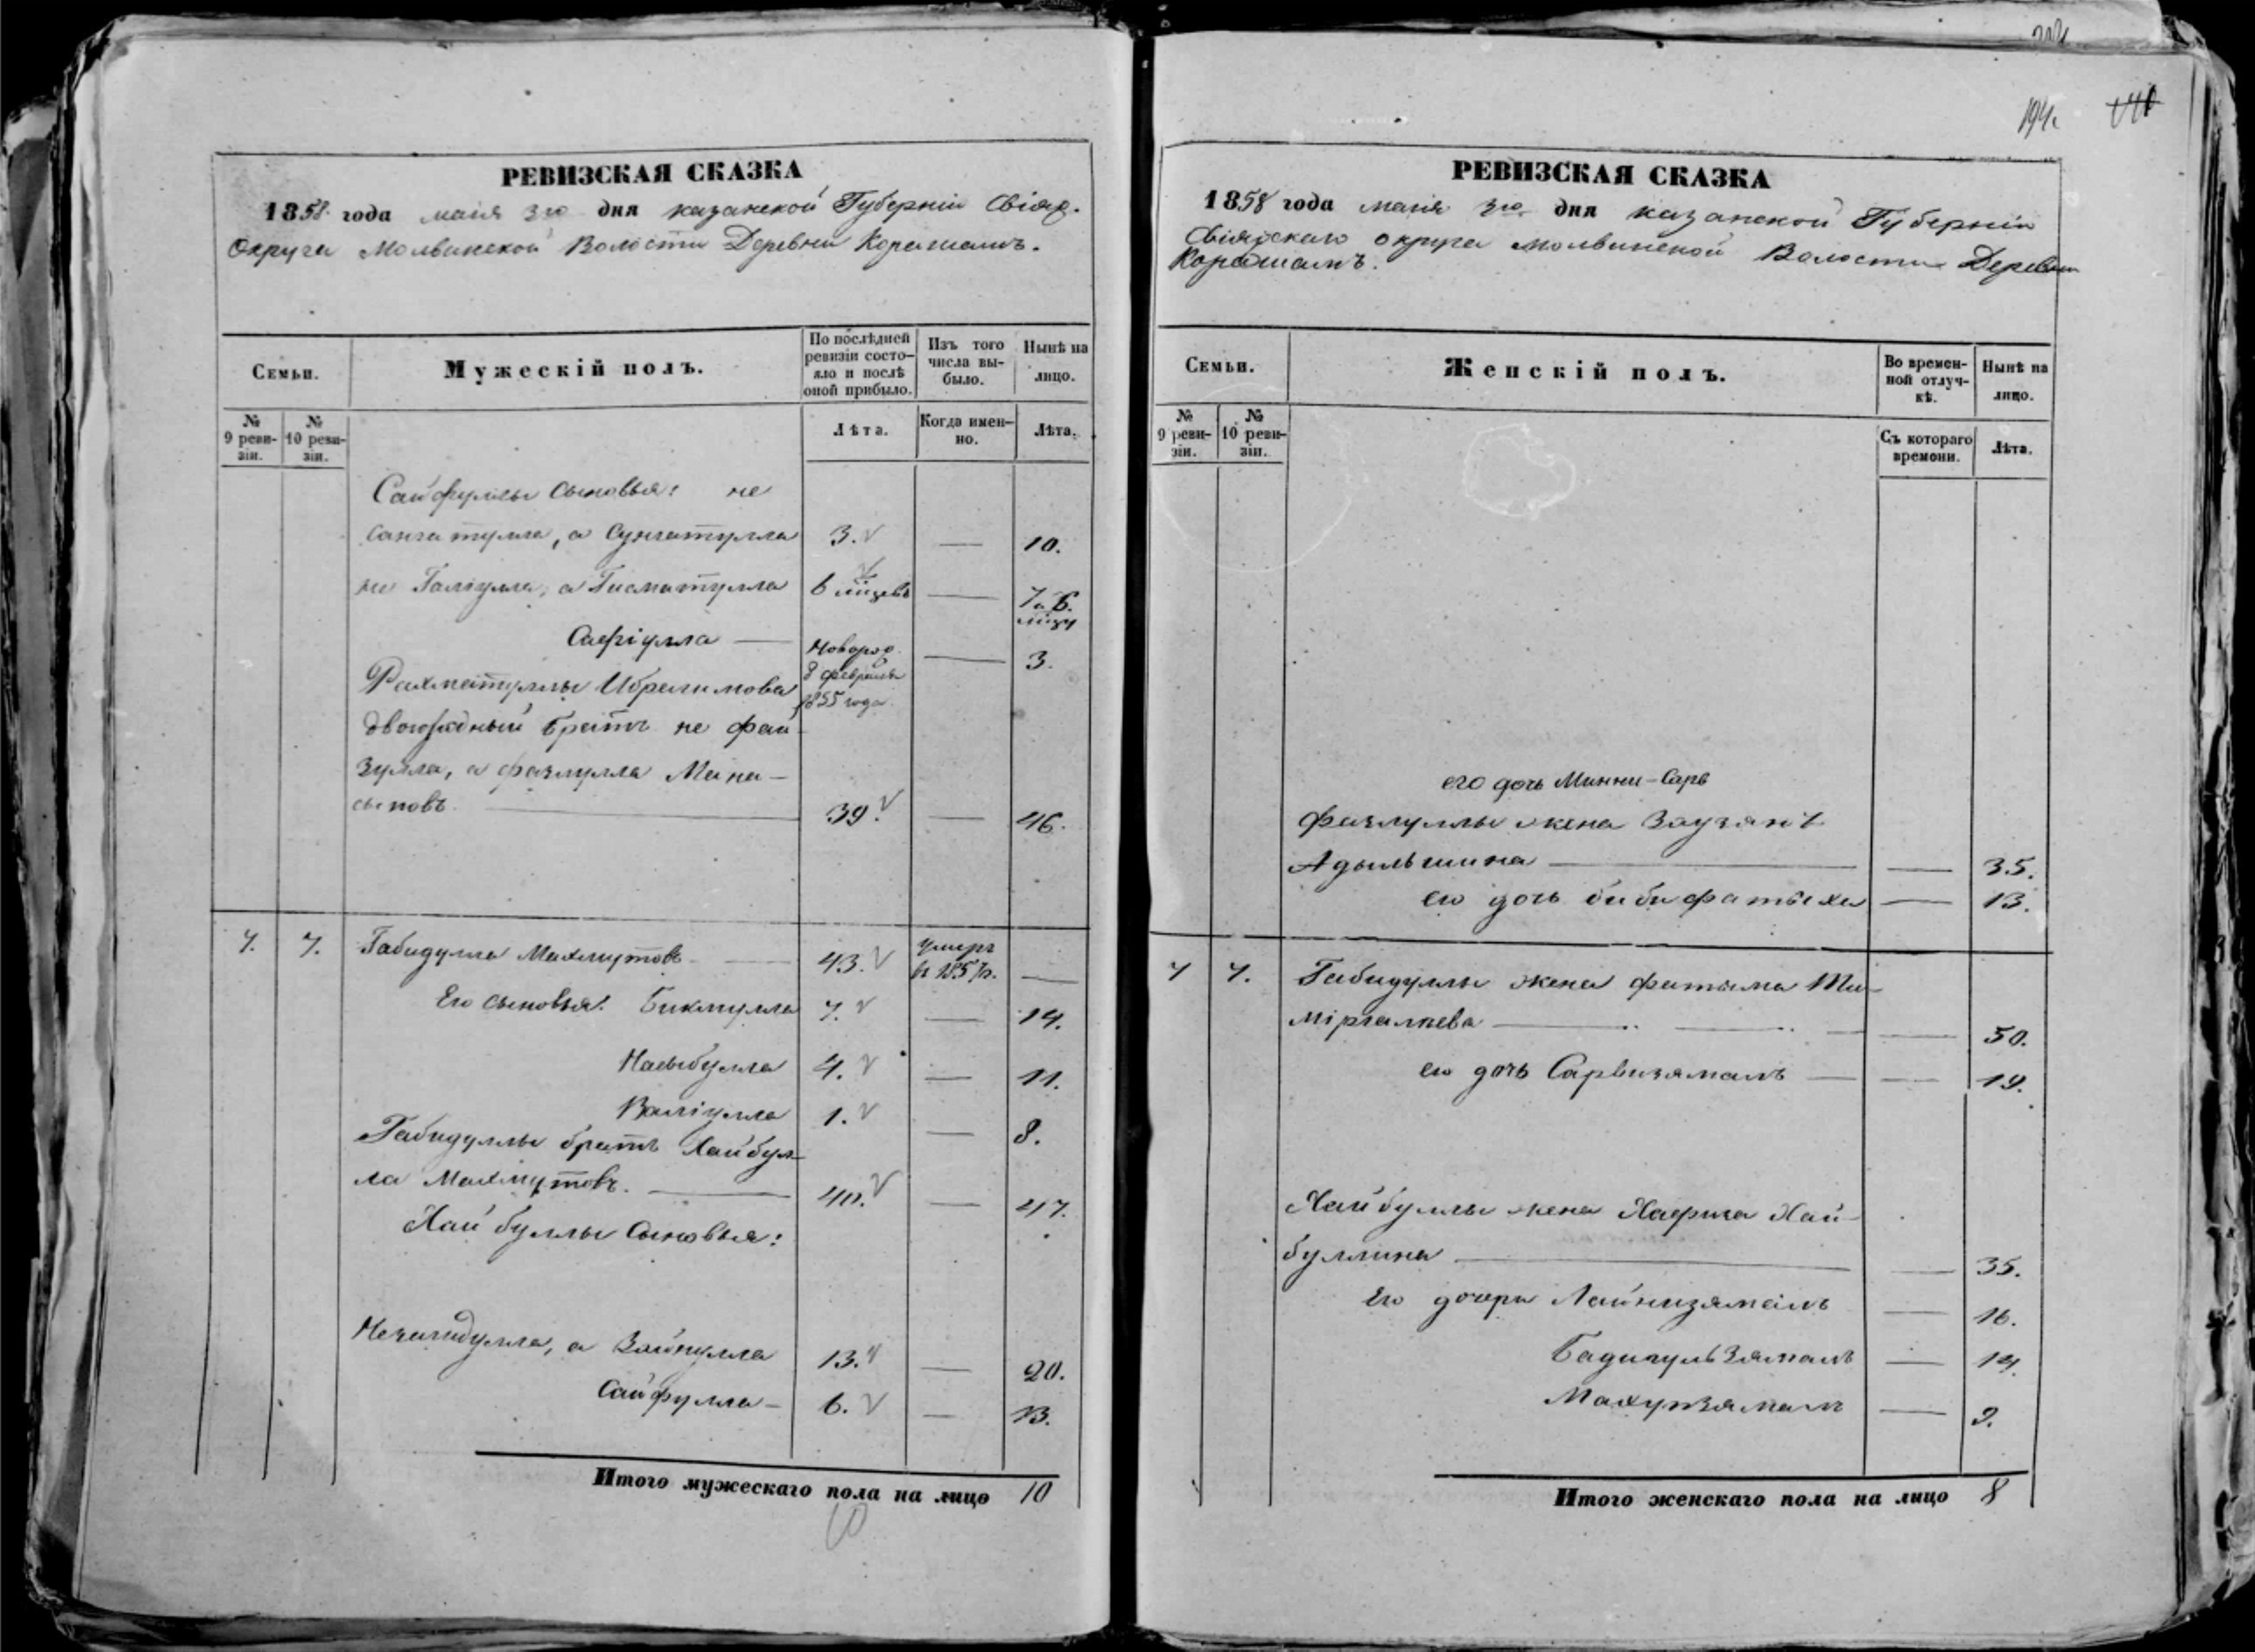 194
РЕВИЗСКАЯ СКАЗКА
1858 года маія 3го дня казанской Губерніи Свіяж.
Округа Молвинской Волости Деревни Корашамъ.
Семьи.
Мужескій полъ.
По послѣдней ревизіи состояло и послѣ оной прибыло.
Изъ того числа выбыло.
Нынѣ на лицо.
№ 9 ревизіи.
№ 10 ревизіи.
Лѣта.
Когда именно.
Лѣта.
Сайфуллы сыновья: не
Сангатулла, а Сунгатулла 3. — 10.
не Галіулла, а Гисматулла 6 мѣцевъ — 7 и 6. мѣцу
Сафіулла — новорож. 8 февраля 1855 года — 3.
Рахматуллы Ибрагимова
двоюрдный братъ не Фай-
зулла, а Фазлулла Мана-
сыповъ 39. — 46.
7. 7. Габидулла Махмутовъ — 43. умеръ в 1857 г. —
Его сыновья: Бикмулла 7. — 14.
Насыбулла 4. — 11.
Валіулла 1. — 8.
Габидуллы братъ Хайбул-
ла Махмутовъ. 40. — 47.
Хайбуллы сыновья:
Незагидулла, а Зайнулла 13. — 20.
Сайфулла — 6. — 13.
Итого мужескаго пола на лицо 10
10
РЕВИЗСКАЯ СКАЗКА
1858 года маія 3го дня казанской Губерніи
Свіяжскаго округа молвинской Волости Деревни
Корашамъ.
Семьи.
Женскій полъ.
Во временной отлучкѣ.
Нынѣ на лицо.
№ 9 ревизіи.
№ 10 ревизіи.
Съ котораго времени.
Лѣта.
его дочь Минни-Сарв
Фазлуллы жена
Адильшина — 35.
его дочь бибифатыха — 13.
7 7. Габидуллы жена фатыма Ти-
міргалиева — 50.
его дочь Сарвизямалъ — 19.
Хайбуллы жена Хафиза Хай-
буллина — 35.
Его дочери Лайнизямалъ — 16.
БадигульЗямалъ — 14.
Махупзямалъ — 9.
Итого женскаго пола на лицо 8